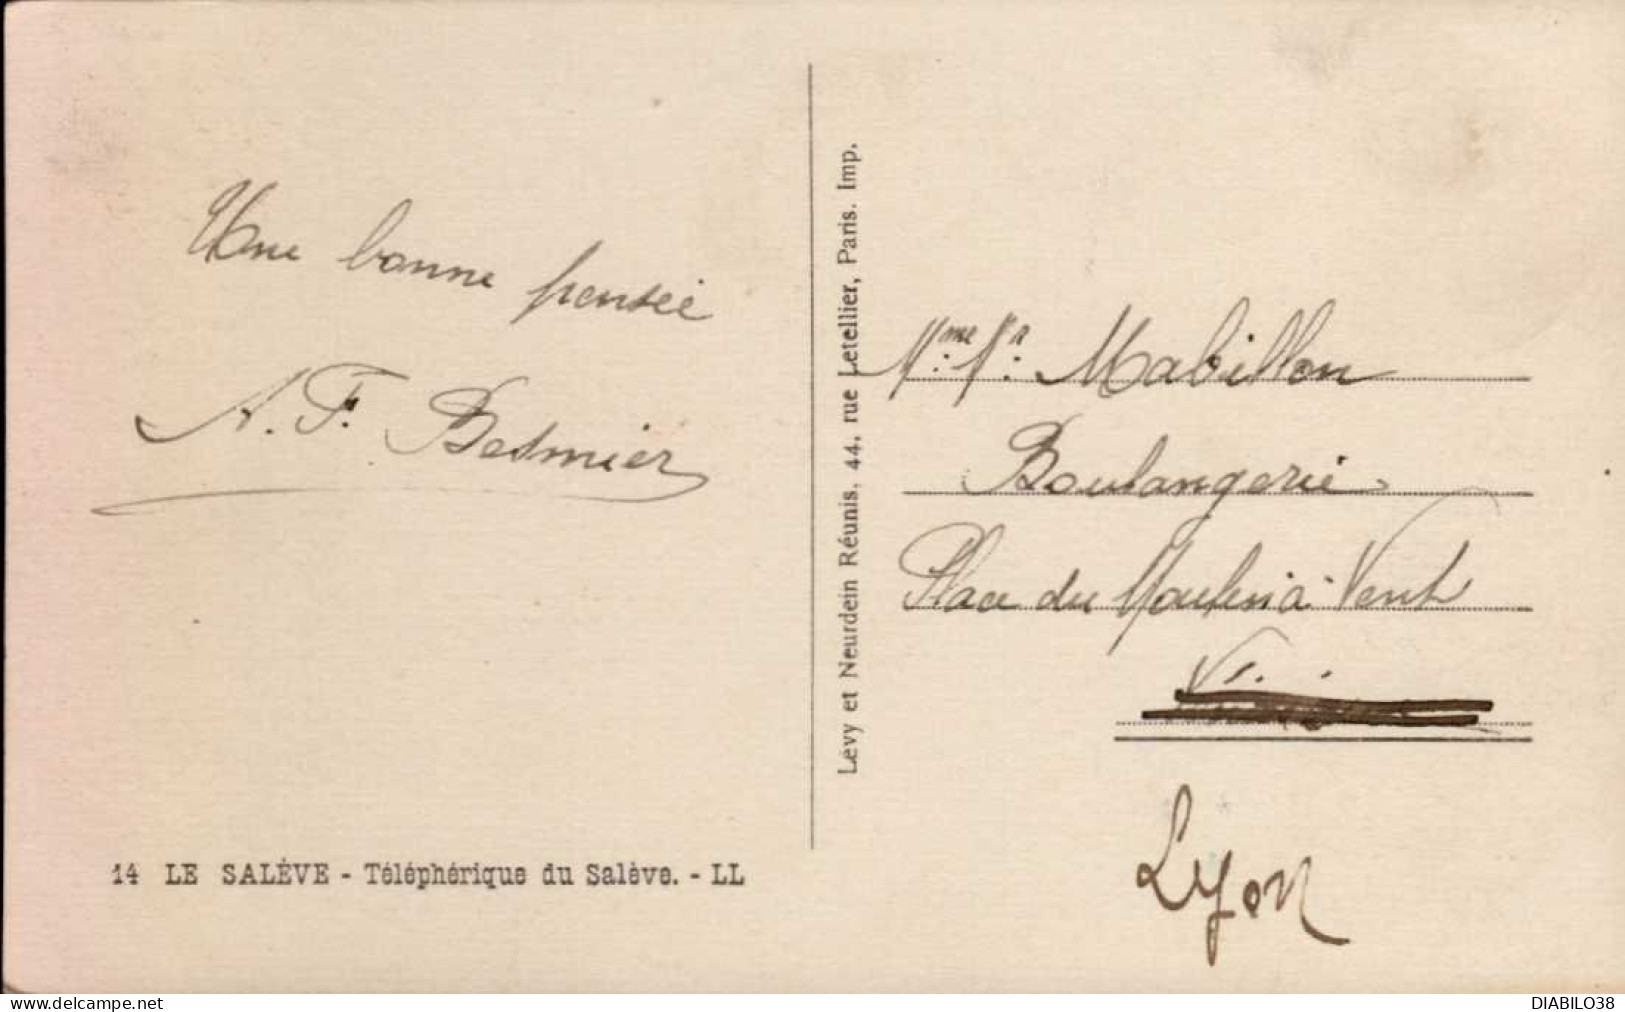 Une bonne pensée
A. F. Besmier
14 LE SALÈVE - Téléphérique du Salève. - LL
Lévy et Neurdein Réunis, 44, rue Letellier, Paris. Imp.
Mabillon
Boulangerie
Place du Moulin à Vent
Lyon
www.delcampe.net
DIABILO38